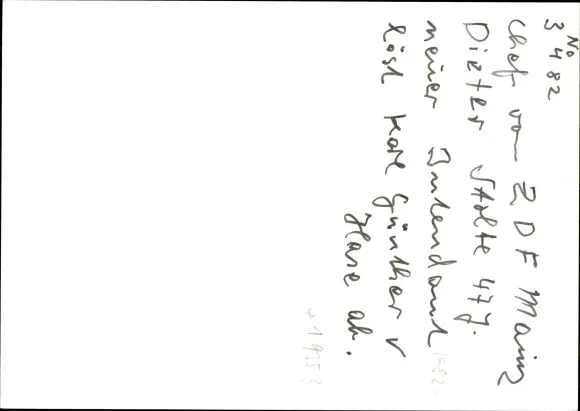 No
3482
Chef vom ZDF Mainz
Dieter Stolte 47 J.
neuer Intendant 1982
löst Karl Günther v
Hase ab.